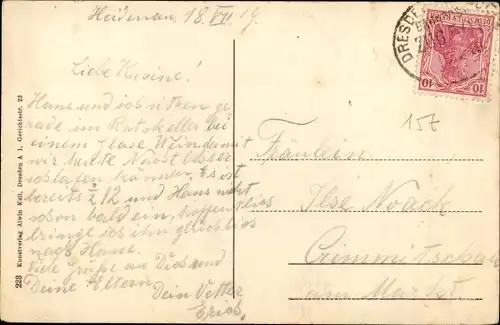 Heidenau, 18. VII. 19.
Liebe Kusine!
Hans und ich sitzen ge-
rade im Ratskeller bei
einem Glase Wein damit
wir heute Nacht besser
schlafen können. Es ist
bereits ½ 12 und Hans nickt
schon bald ein, hoffentlich
bringe ich ihn glücklich
nach Hause.
Viele Grüße an Dich und
Deine Eltern
Dein Vetter
Erich.
DRESDEN
157
Fräulein
Ilse Noack
Crimmitschau
am Markt.
10 10
223 Kunstverlag Alwin Keil, Dresden A 1, Gerichtsstr. 23